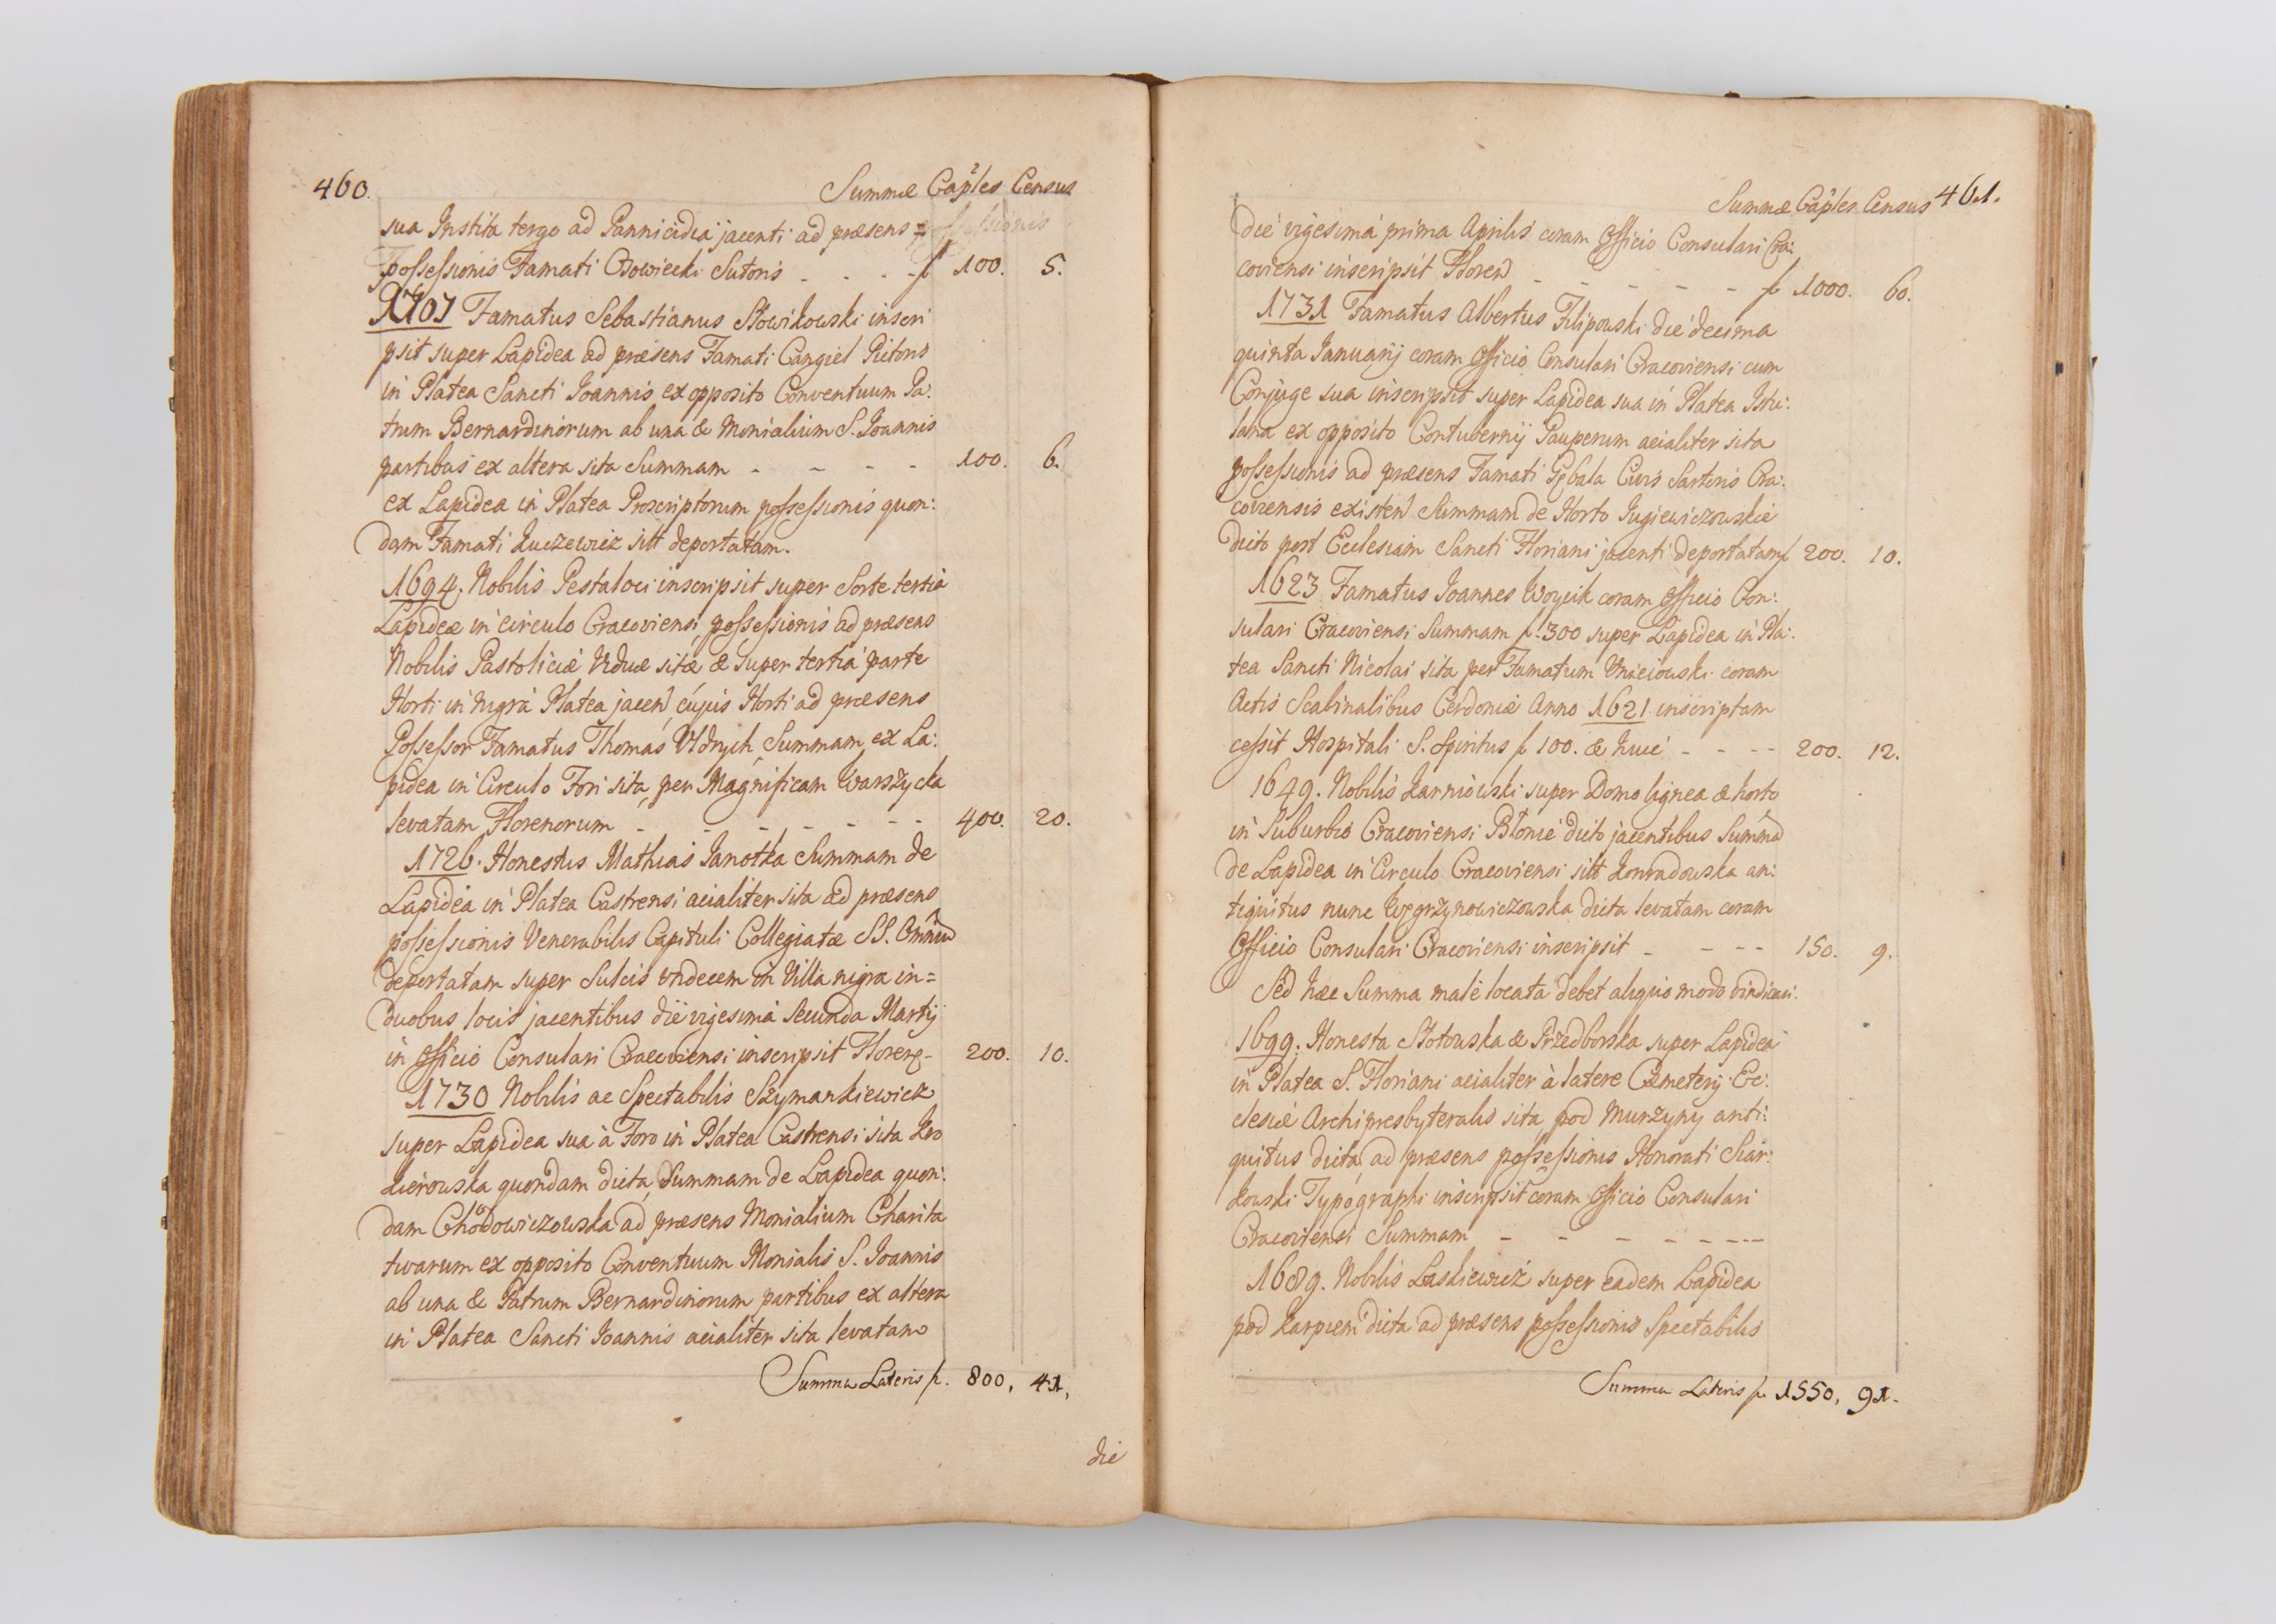 460.
Summæ Cap̃les Census
sua Instita tergo ad Pannicidia jacenti ad præsens
possessionis Famati Osowiecki Sutoris - - - - f 100. 5.
1707 Famatus Sebastianus Słowikowski inscri
psit super Lapidea ad præsens Famati Cangiel Pictoris
in Platea Sancti Joannis ex opposito Conventuum Pa:
trum Bernardinorum ab una & Monialium S. Joannis
partibus ex altera sita Summam - - - - 100. 6.
ex Lapidea in Platea Proscriptorum possessionis quon:
dam Famati Kuczewicz sitt deportatam.
1694. Nobilis Pestaloci inscripsit super Sorte tertia
Lapideæ in circulo Cracoviensi, possessionis ad præsens
Nobilis Pastoliciæ Viduæ sitæ & super tertia parte
Horti in nigra Platea jacen, cujus Horti ad præsens
Possessor Famatus Thomas Uldrych, Summam ex La:
pidea in Circulo Fori sita, per Magnificam Warszycka
levatam Florenorum - - - - - - - 400. 20.
1726. Honestus Mathias Janotka Summam de
Lapidea in Platea Castrensi acialiter sita ad præsens
possessionis Venerabilis Capituli Collegiatæ SS. Omniū
deportatam super Sulcis undecem in Villa nigra in=
duobus locis jacentibus die vigesima secunda Martij
in Officio Consulari Cracoviensi inscripsit Floren - 200. 10.
1730 Nobilis ac Spectabilis Szymankiewicz
super Lapidea sua à Foro in Platea Castrensi sita Kro
kierowska quondam dicta, Summam de Lapidea quon:
dam Chodowiczowska ad præsens Monialium Charita
tivarum ex opposito Conventuum Monialis S. Joannis
ab una & Patrum Bernardinorum partibus ex altera
in Platea Sancti Joannis acialiter sita levatam
Summa Lateris f. 800, 41,
die
Summæ Cap̃les Census 461.
die vigesima prima Aprilis coram Officio Consulari Cra:
coviensi inscripsit Floren - - - - - f 1000. 60.
1731 Famatus Albertus Filipowski die decima
quinta Januarij coram Officio Consulari Cracoviensi cum
Conjuge sua inscripsit super Lapidea sua in Platea Istu:
lana ex opposito Contubernij Pauperum acialiter sita
possessionis ad præsens Famati Gębala Civis Sartoris Cra:
coviensis existen Summam de Horto Jugiewiczowskie
dicto post Ecclesiam Sancti Floriani jacenti deportatam f 200. 10.
1623 Famatus Joannes Woycik coram Officio Con:
sulari Cracoviensi Summam f. 300 super Lapidea in Pla:
tea Sancti Nicolai sita per Famatum coram
Actis Scabinalibus Cerdoniæ Anno 1621 inscriptam
cessit Hospitali S. Spiritus f 100. & huic - - - - 200. 12.
1649. Nobilis Karniowski super Domo lignea & horto
in Suburbio Cracoviensi Błonie dicto jacentibus Summā
de Lapidea in Circulo Cracoviensi sitt Konradowska an:
tiquitus nunc Węgrzynowiczowska dicta levatam coram
Officio Consulari Cracoviensi inscripsit - - - - 150. 9.
Sed hæc Summa malè locata debet aliquo modo vindicari.
1699. Honesta Słotowska & Przedborska super Lapidea
in Platea S. Floriani acialiter à latere Cæmeterij Ec:
clesiæ Archipresbyteralis sita, pod Murzyny anti:
quitus dicta, ad præsens possessionis Honorati Sciar:
kowski Typographi inscripsit coram Officio Consulari
Cracoviensi Summam - - - - - - -
1689. Nobilis Laskiewicz super eadem Lapidea
pod Karpiem dicta ad præsens possessionis Spectabilis
Summa Lateris f. 1550, 91.